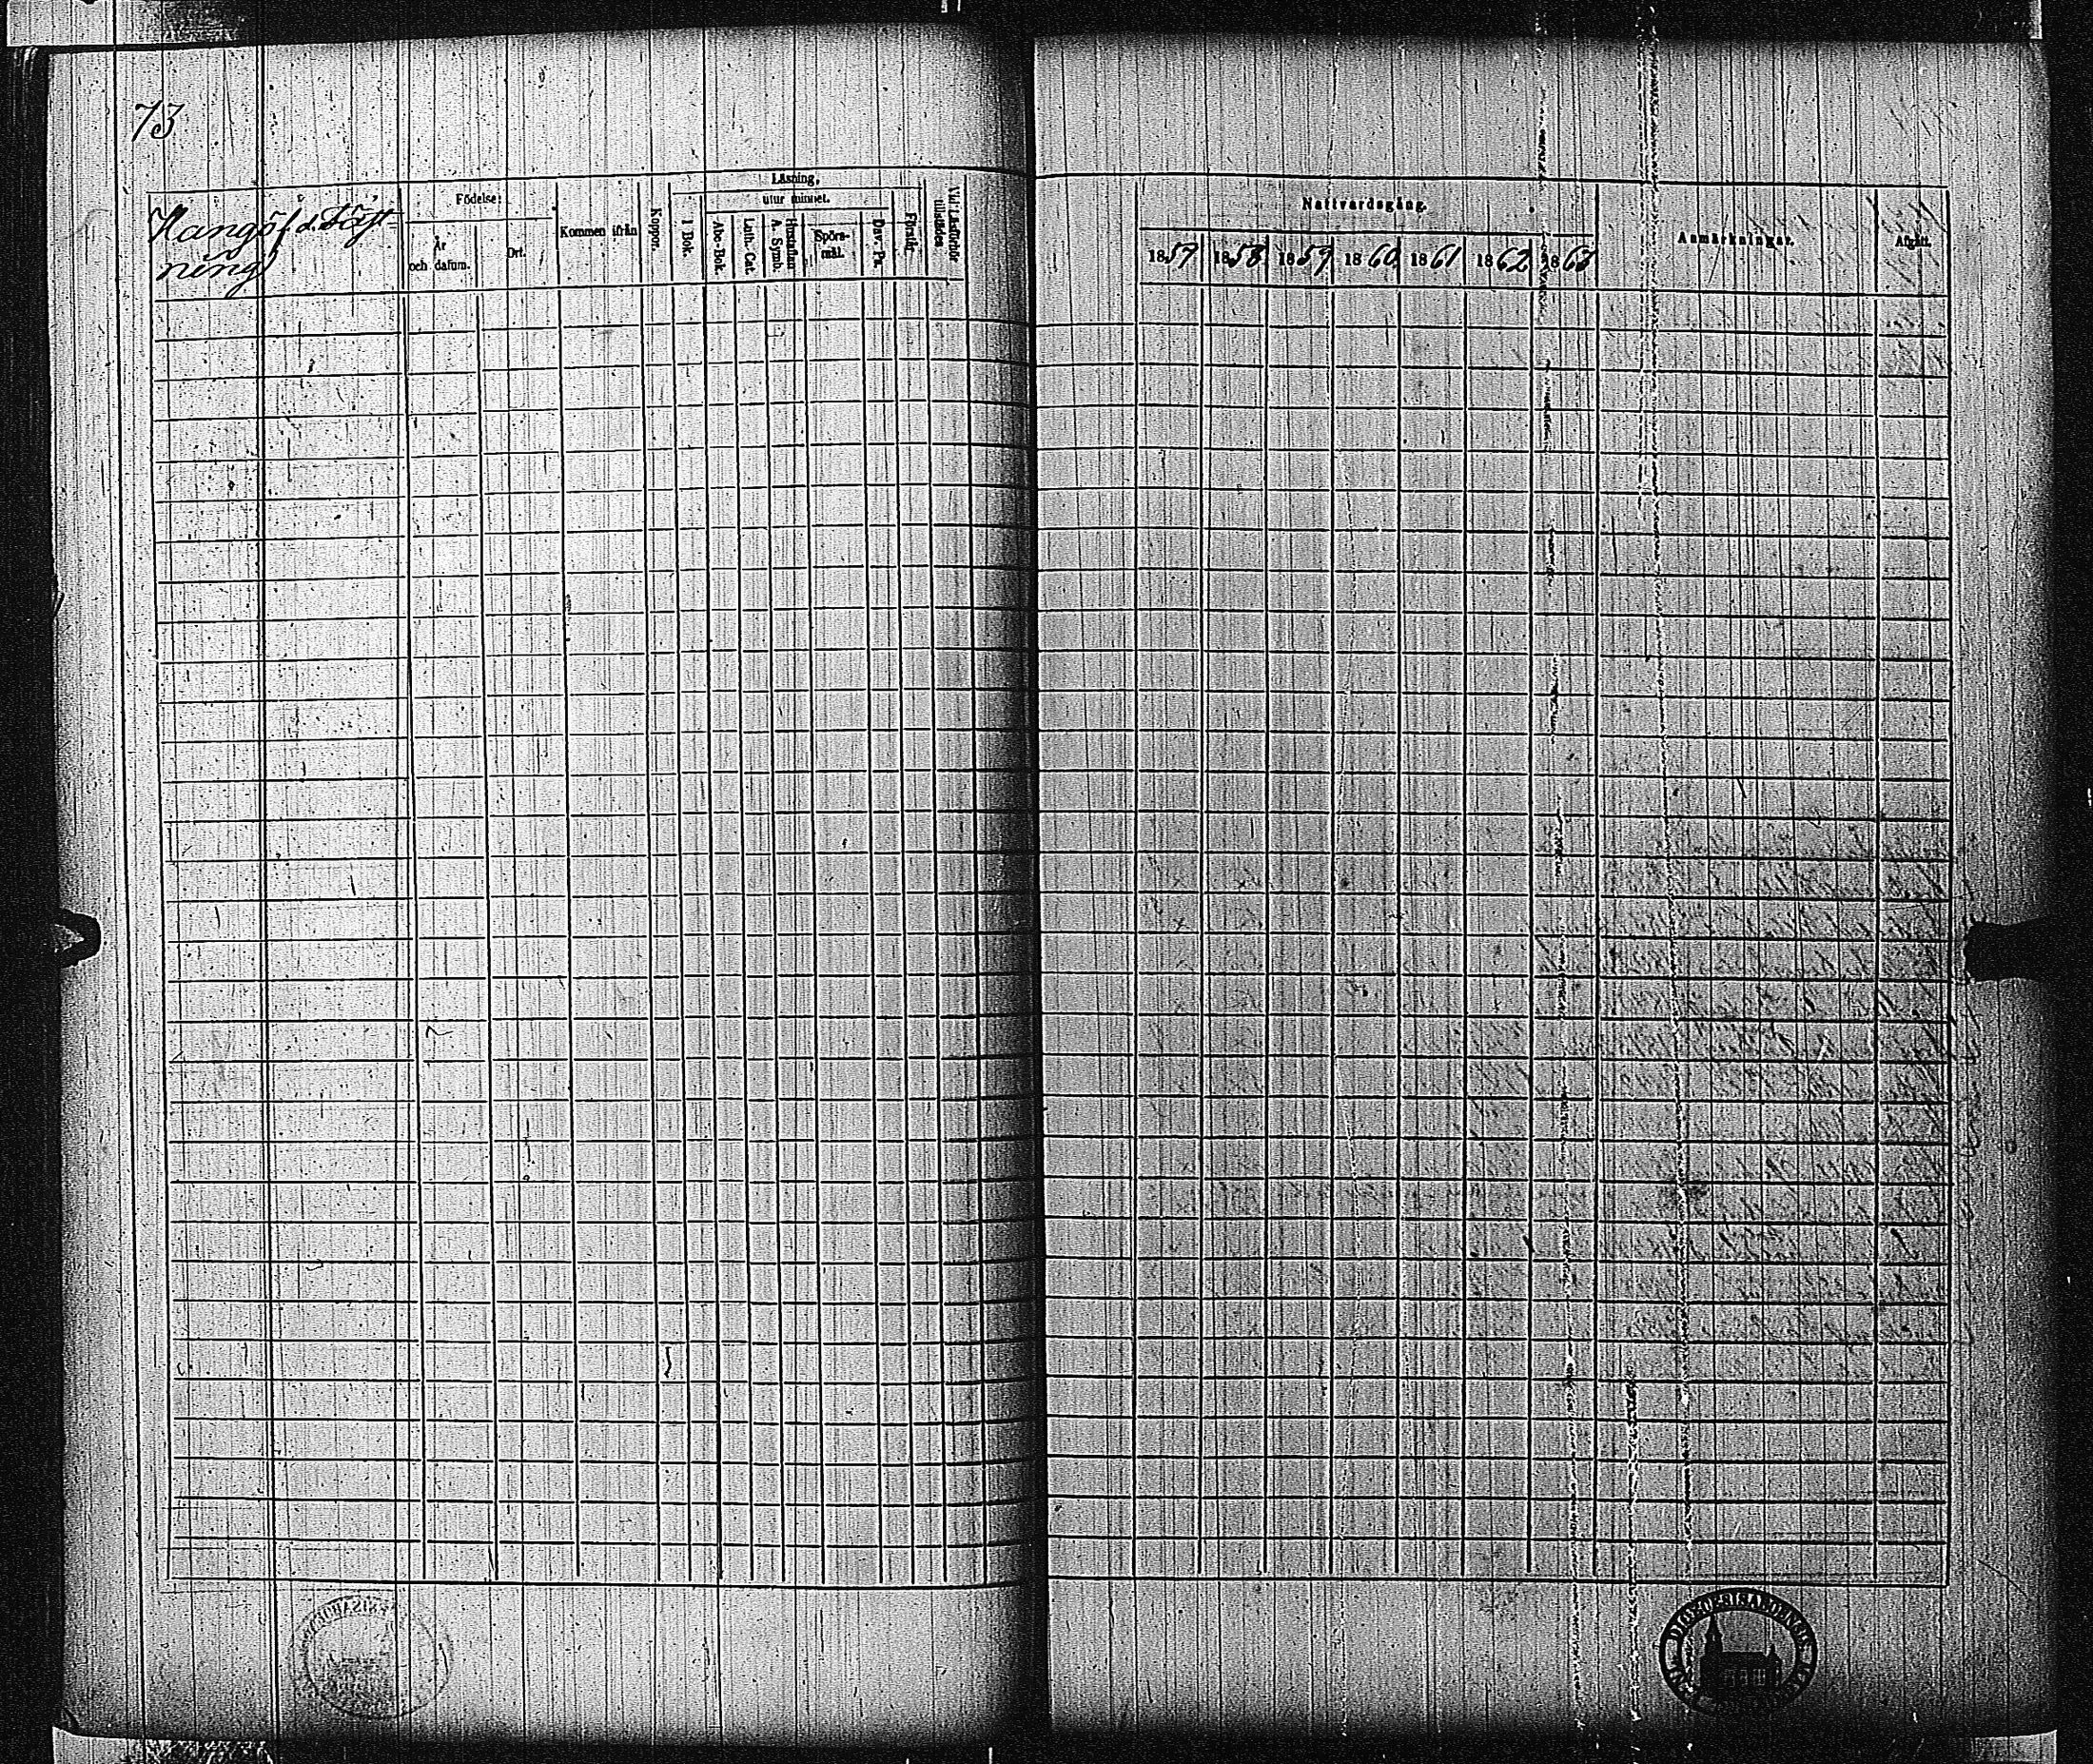 73
Hangö f. d. Fäst-
ning
Födelse:
År
och datum.
Ort.
Kommen ifrån
Koppor.
Läsning,
utur minnet.
I Bok.
Abc-Bok.
Luth. Cat.
Hustaflan
A. Symb.
Spörs-
mål.
Dav. Ps.
Förstår.
Vid Läsförhör
tillstädes.
Nattvardsgång.
1857 1858 1859 1860 1861 1862 1863
Anmärkningar.
Afgått.
DIOECESIS ABOENSIS